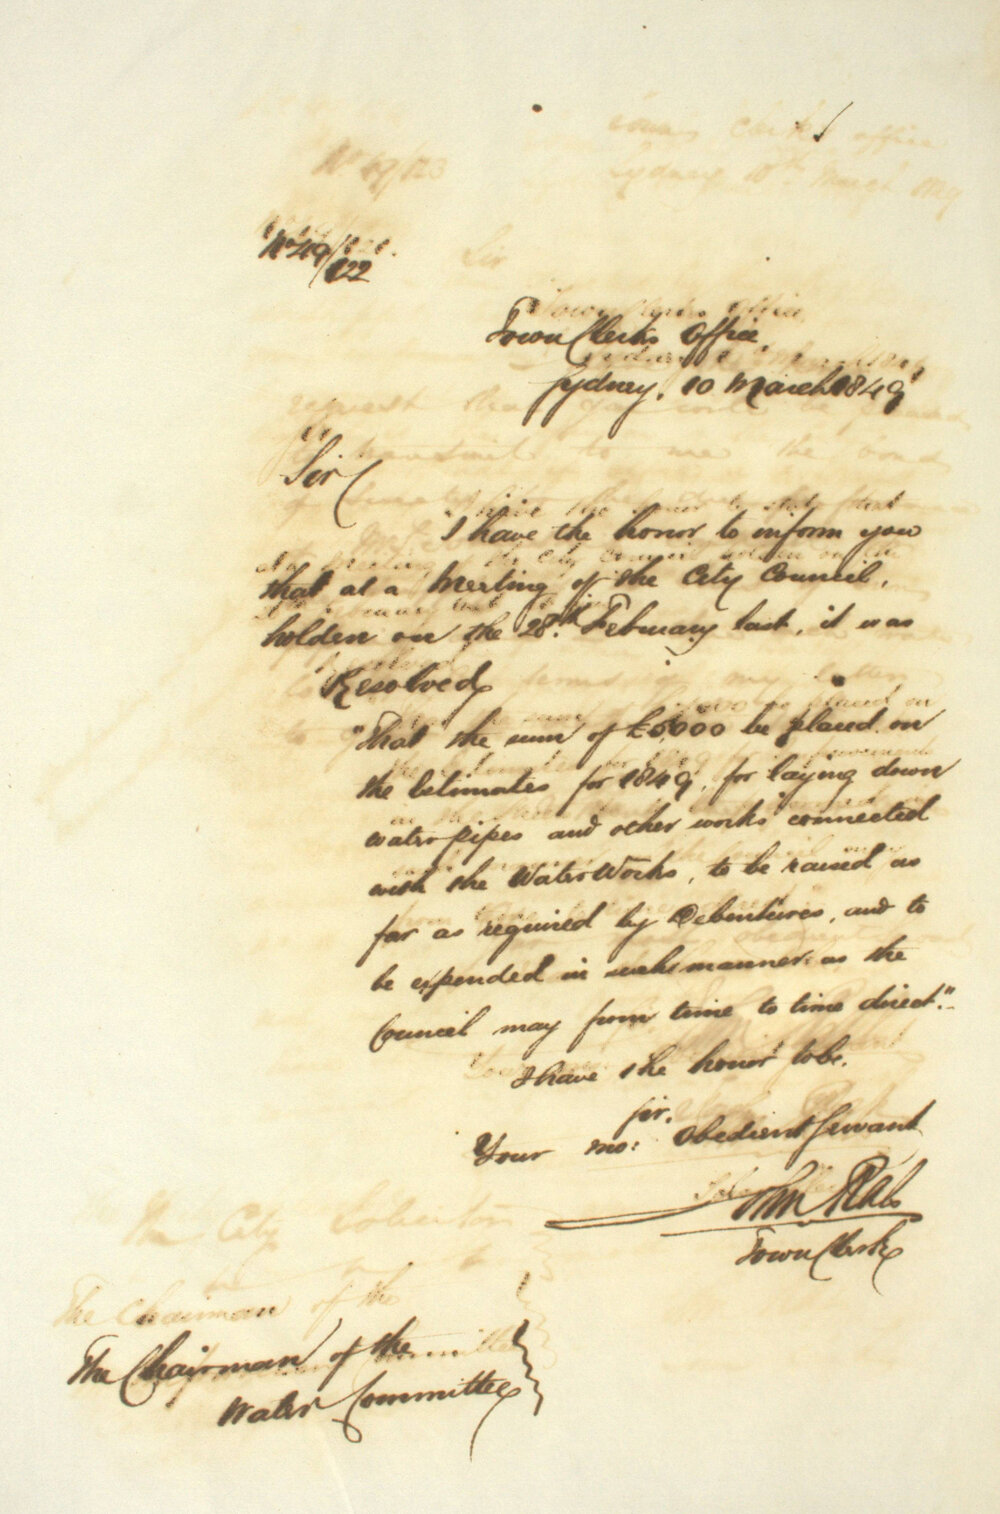 No 49/122
Town Clerks Office,
Sydney, 10 March 1849
Sir
I have the honor to inform you
that at a Meeting of the City Council,
holden on the 28th February last, it was
Resolved,
"That the sum of £5000 be placed on
the Estimates for 1849, for laying down
water pipes and other works connected
with the Water Works, to be raised as
far as required by Debentures, and to
be expended in such manner as the
Council may from time to time direct."
I have the honor to be,
Sir,
Your mo: Obedient Servant
John Rae
Town Clerk
The Chairman of the
Water Committee